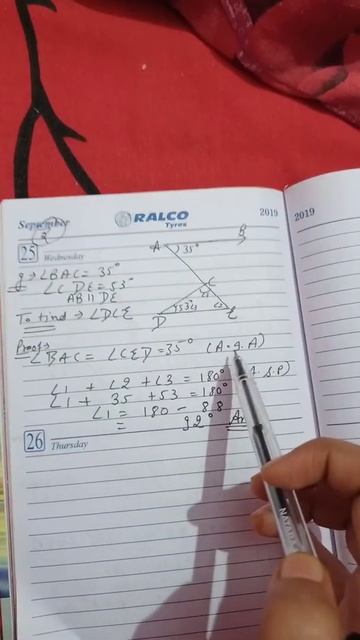 September
2
RALCO
Tyres
2019
2019
25 Wednesday
A 35° B
g → ∠BAC = 35°
∠CDE = 53°
AB || DE
C
∠1
To find → ∠DCE
D 53° E
Proof→
∠BAC = ∠CED = 35° (A.g.A)
∠1 + ∠2 + ∠3 = 180° S.P)
∠1 + 35 + 53 = 180°
∠1 = 180 - 88
= 92°
26 Thursday